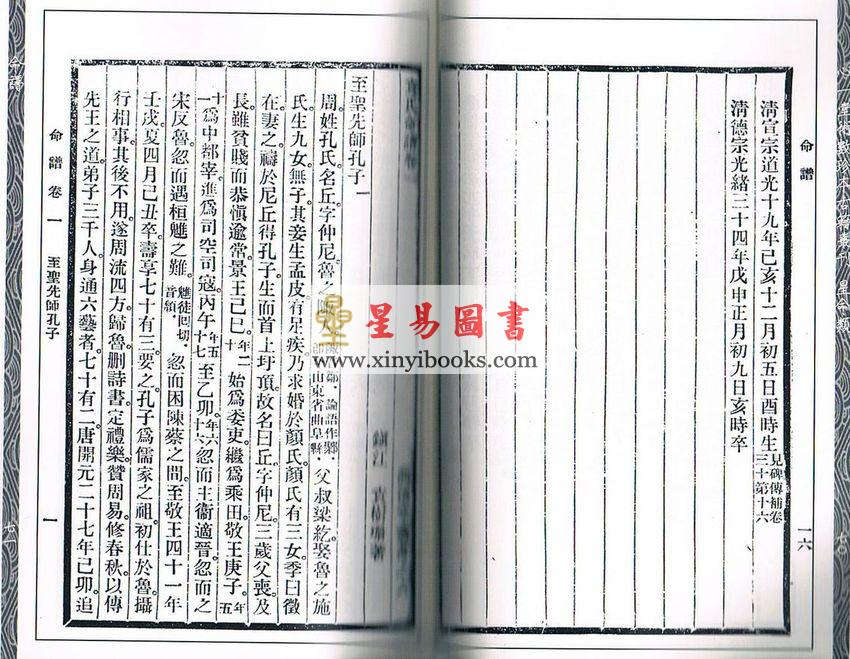 命譜
一六
清宣宗道光十九年己亥十二月初五日酉時生見碑傳補卷三十第十六
清德宗光緒三十四年戊申正月初九日亥時卒
袁氏命譜卷一
鎮江 袁樹珊著
至聖先師孔子一
周姓孔氏名丘字仲尼。魯之陬人。論語作鄹。卽山東省曲阜縣。父叔梁紇娶魯之施
氏生九女無子。其妾生孟皮。有足疾乃求婚於顏氏。顏氏有三女。季曰徵
在。妻之。禱於尼丘得孔子。生而首上圩頂。故名曰丘字仲尼。三歲父喪。及
長雖貧賤而恭慎逾常。景王己巳年二十始爲委吏。繼爲乘田。敬王庚子年五
十一爲中都宰。進爲司空司寇。丙午年五十七至乙卯年六十六忽而主衞適晉。忽而之
宋反魯。忽而遇桓魋之難。魋徒回切。音頹。忽而困陳蔡之間。至敬王四十一年
壬戌夏四月己丑卒。壽享七十有三。要之孔子爲儒家之祖。初仕於魯。攝
行相事。其後不用。遂周流四方。歸魯刪詩書定禮樂贊周易修春秋。以傳
先王之道。弟子三千人。身通六藝者。七十有二。唐開元二十七年己卯。追
命譜 卷一 至聖先師孔子
一
星易圖書
www.xinyibooks.com